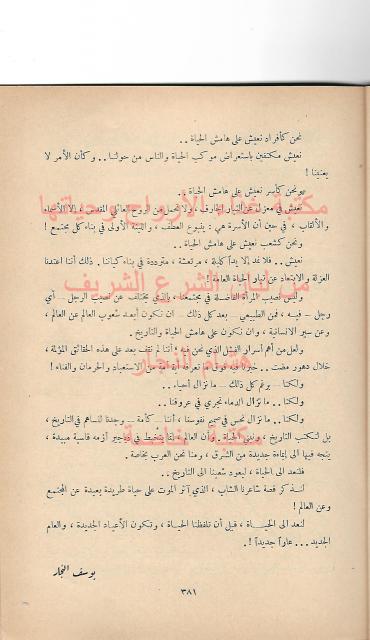 نحن كأفراد نعيش على هامش الحياة . .
نعيش مكتفين باستعراض موكب الحياة والناس من حولنا . . وكأن الأمر لا
يعنينا !
ونحن كأسر نعيش على هامش الحياة . .
نعيش في معزل عن التيار الجارف ، ولا نحمل من الروح العائلي المقدس ، إلا الأسماء
والألقاب ، في حين أن الأسرة هي : ينبوع العطف ، واللبنة الأولى في بناء كل مجتمع !
ونحن كشعب نعيش على هامش الحياة . .
نعيش . . فلا نمد إلا يداً كليلة ، مرتعشة ، مترددة في بناء كياننا . ذلك أننا اعتدنا
العزلة والابتعاد عن تيار الحياة العامة !
نصيب المرأة الفاضلة في مجتمعنا ، بالذي يختلف عن نصيب الرجل – أي
رجل – فيه ، فمن الطبيعي – بعد كل ذلك – ان نكون أبعد شعوب العالم عن العالم ،
وعن سير الانسانية ، وان نكون على هامش الحياة والتاريخ .
ولعل من أهم أسرار الفشل الذي نحن فيه ، أننا لم نقف بعد على هذه الحقائق المؤلمة ،
خلال دهور مضت . . من الاستعباد والحرمان والفناء !
ولكنا – برغم كل ذلك – ما نزال أحياء . .
ولكنا . . ما نزال الدماء تجري في عروقنا . .
ولكنا . . ما نزال نحس في صميم نفوسنا ، أننا – كأمة – وجدنا لنساهم في التاريخ ،
بل لنكتب التاريخ ، ونبني الحياة . وأن العالم ، لما يتخبط في دياجير أزمة قاسية مبيدة ،
يتجه فيها الى إضاءة جديدة من الشرق ، ومنا نحن العرب بخاصة .
فلنعد الى الحياة ، لنعود شعبنا الى التاريخ . .
لنذكر قصة شاعرنا الشاب ، الذي آثر الموت على حياة طريدة بعيدة عن المجتمع
وعن العالم !
لنعد الى الحياة ، قبل أن تلفظنا الحياة ، وتكون الأعياد الجديدة ، والعام
الجديد . . . عاراً جديداً ! .
يوسف النجار
٣٨١
مكتبة لسان الأرواح وحياتها
من لسان الشرع الشريف
هشام النجار
مكتبة خاصة